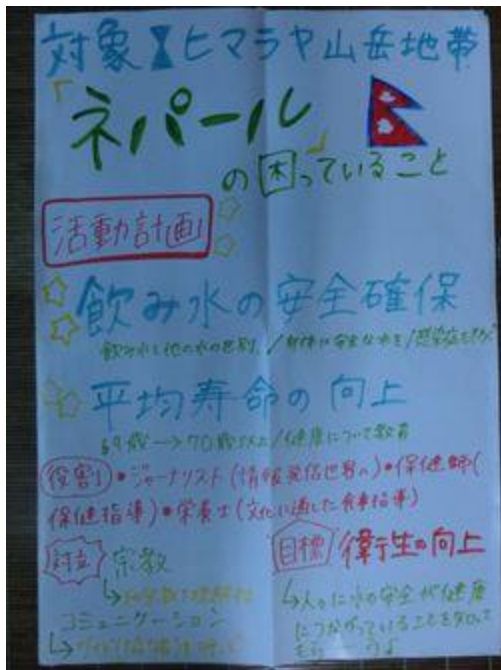 対象 ヒマラヤ山岳地帯
「ネパール」
の困っていること
活動計画
飲み水の安全確保
飲み水と他の水の区別 / 身体に安全な水を / 感染症を
平均寿命の向上
69歳→70歳以上 / 健康について教育
役割 ・ジャーナリスト(情報発信世界へ)・保健師(
保健指導)・栄養士(文化に適した食事指導)
対立 宗教
コミュニケーション
目標 衛生の向上
↳人々に水の安全が健康
につながっていることを知って
もらう